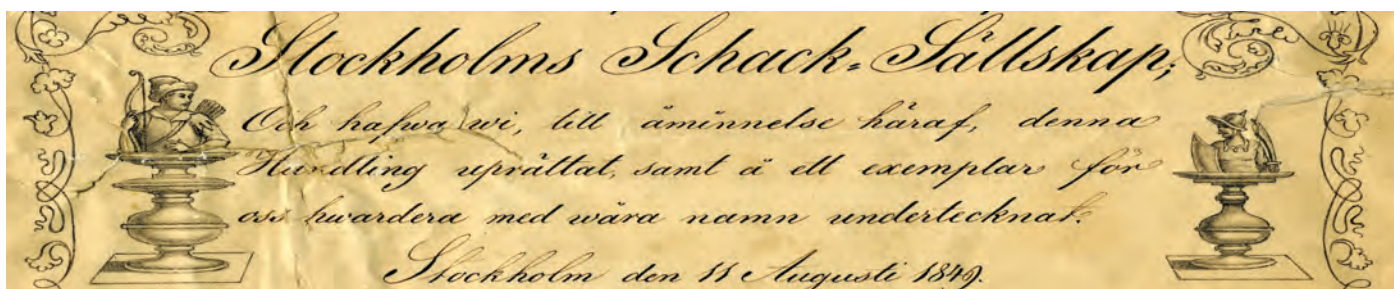 Stockholms Schack-Sällskap;
Och hafwa wi, till åminnelse häraf, denna
Handling uprättat, samt å ett exemplar för
oss hwardera med wåra namn undertecknat.
Stockholm den 11 Augusti 1849.